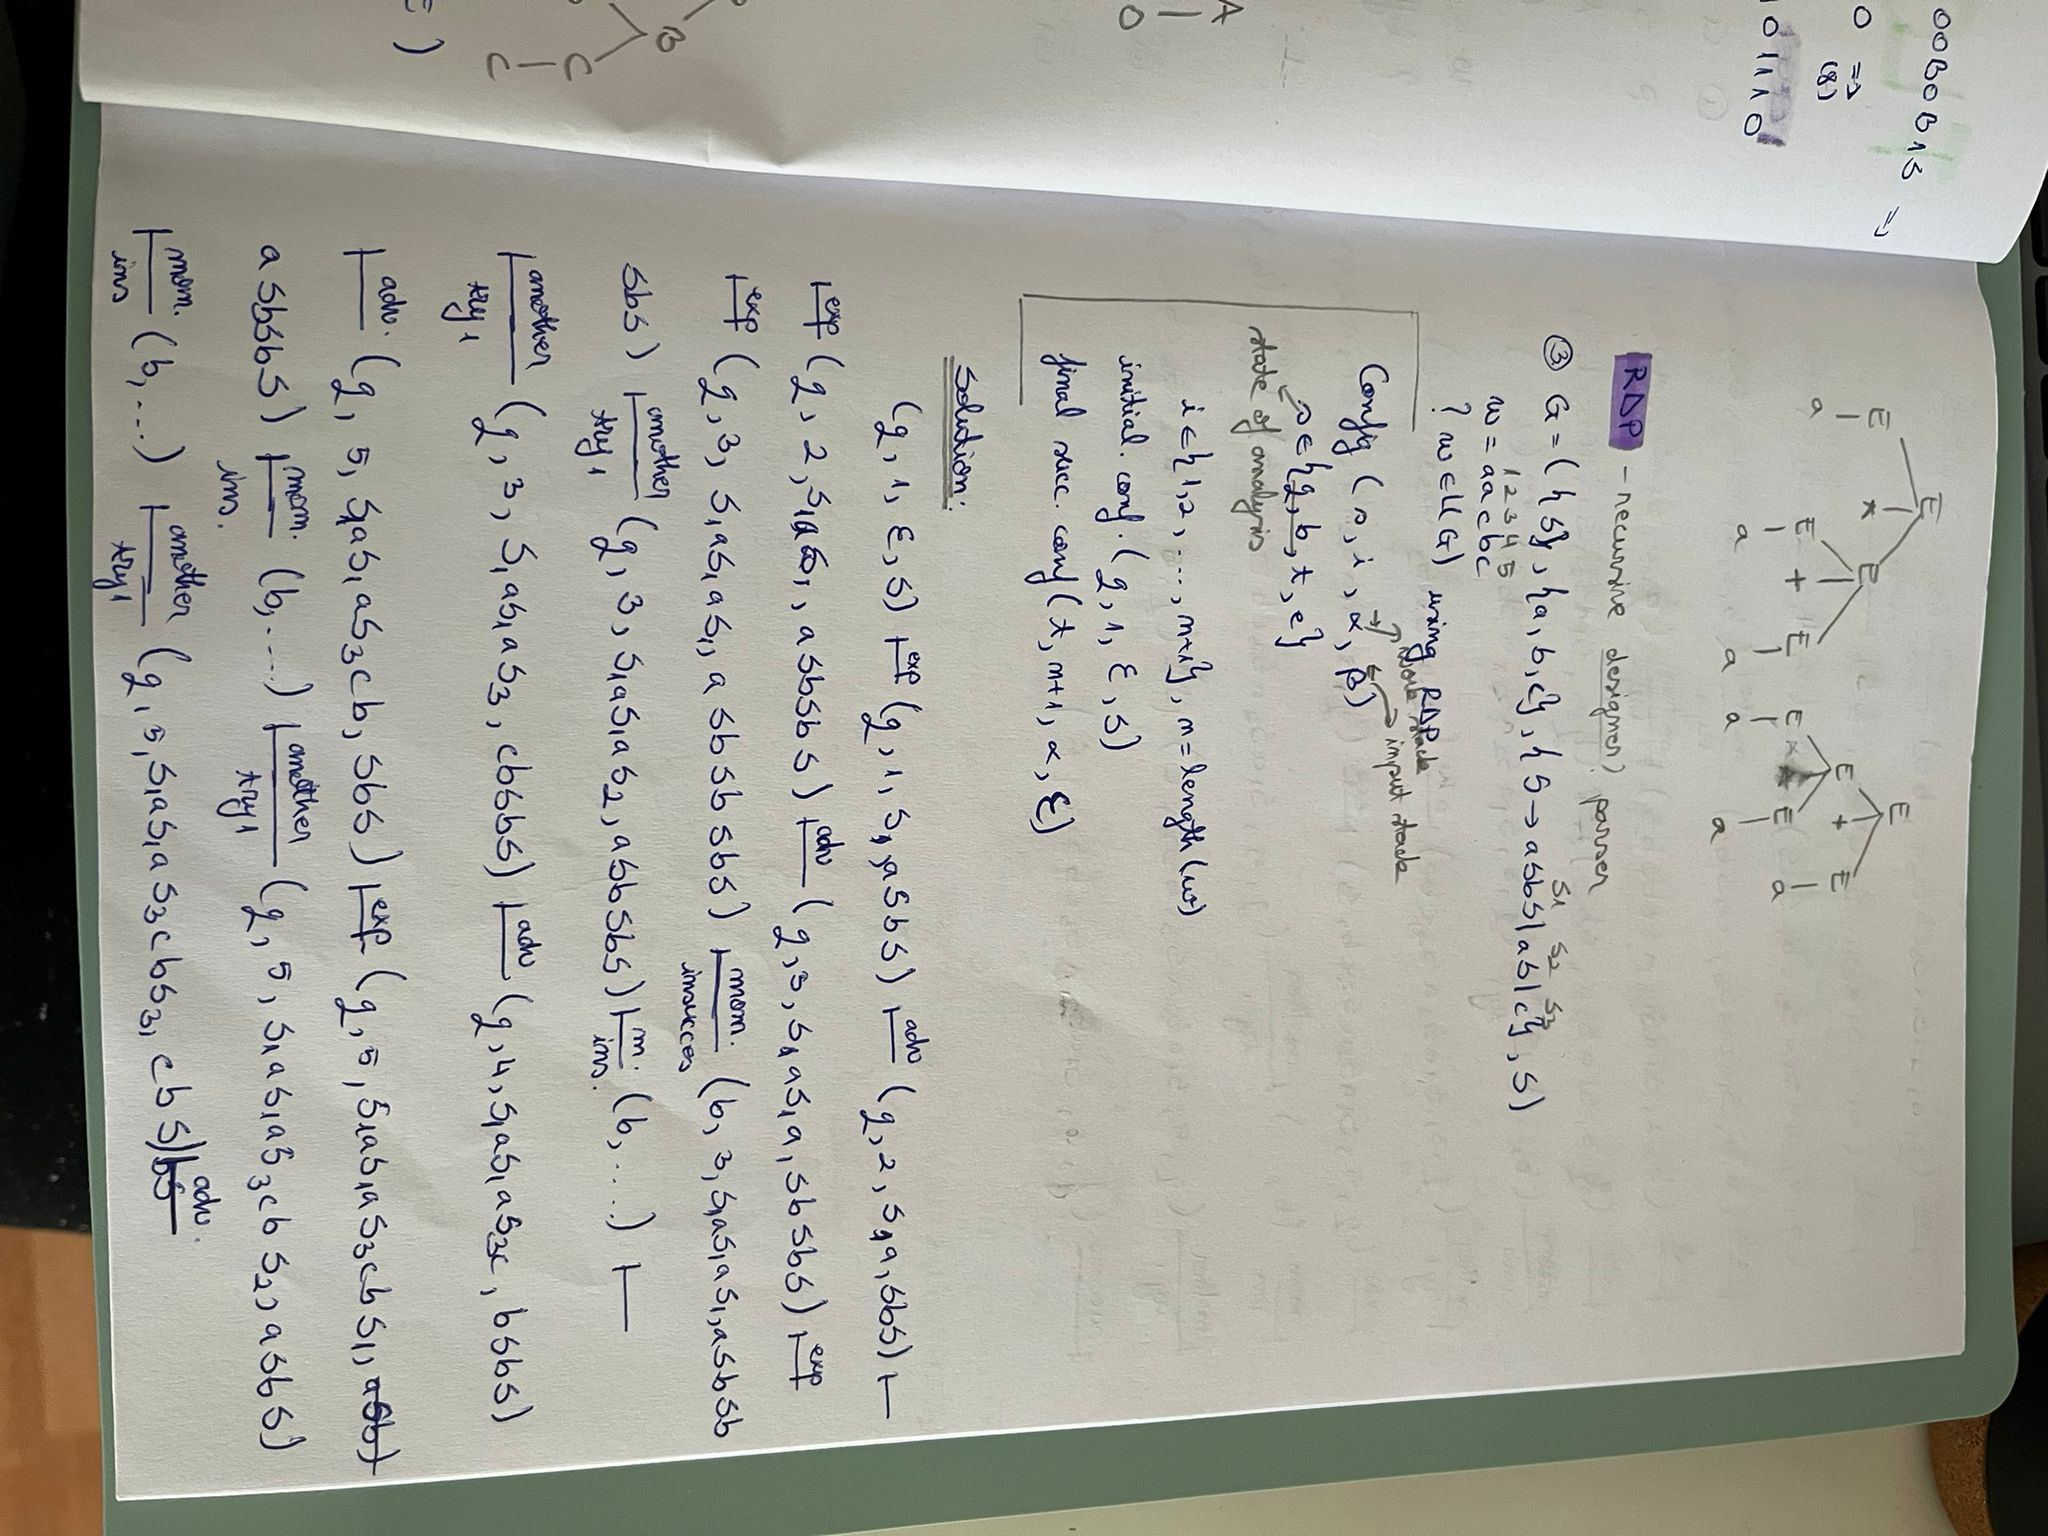 00B0B1S =>
0 =>
(8)
101110
A
0
B
C
C
E
E * E
a E + E
a a
E
E + E
E * E a
a a
RDP - recursive designer? parser
③ G = ({S}, {a, b, c}, {S → aSbS | aS | c}, S)
S1 S2 S3
1 2 3 4 5
w = aacbc
? w ∈ L(G) using RDP
work stack
input stack
Config (s, i, α, β)
s ∈ {q, b, t, e}
state of analysis
i ∈ {1, 2, ..., n+1}, n = length(w)
initial. conf. (q, 1, ε, S)
final succ. conf (t, n+1, α, ε)
Solution:
(q, 1, ε, S) ⊢exp (q, 1, S1, aSbS) ⊢adv (q, 2, S1a, SbS) ⊢
⊢exp (q, 2, S1aS1, aSbSbS) ⊢adv (q, 3, S1aS1a, SbSbS) ⊢exp
⊢exp (q, 3, S1aS1aS1, aSbSbSbS) ⊢mom. insucces (b, 3, S1aS1aS1, aSbSb
SbS) ⊢another try1 (q, 3, S1aS1aS2, aSbSbS) ⊢m. ins. (b, ....) ⊢
⊢another try1 (q, 3, S1aS1aS3, cbSbS) ⊢adv (q, 4, S1aS1aS3c, bSbS)
⊢adv. (q, 5, S1aS1aS3cb, SbS) ⊢exp (q, 5, S1aS1aS3cbS1, aSb)
aSbSbS) ⊢mom. ins. (b, ....) ⊢another try1 (q, 5, S1aS1aS3cbS2, aSbS)
⊢mom. ins (b, ...) ⊢another try1 (q, 5, S1aS1aS3cbS3, cbS) ⊢adv.